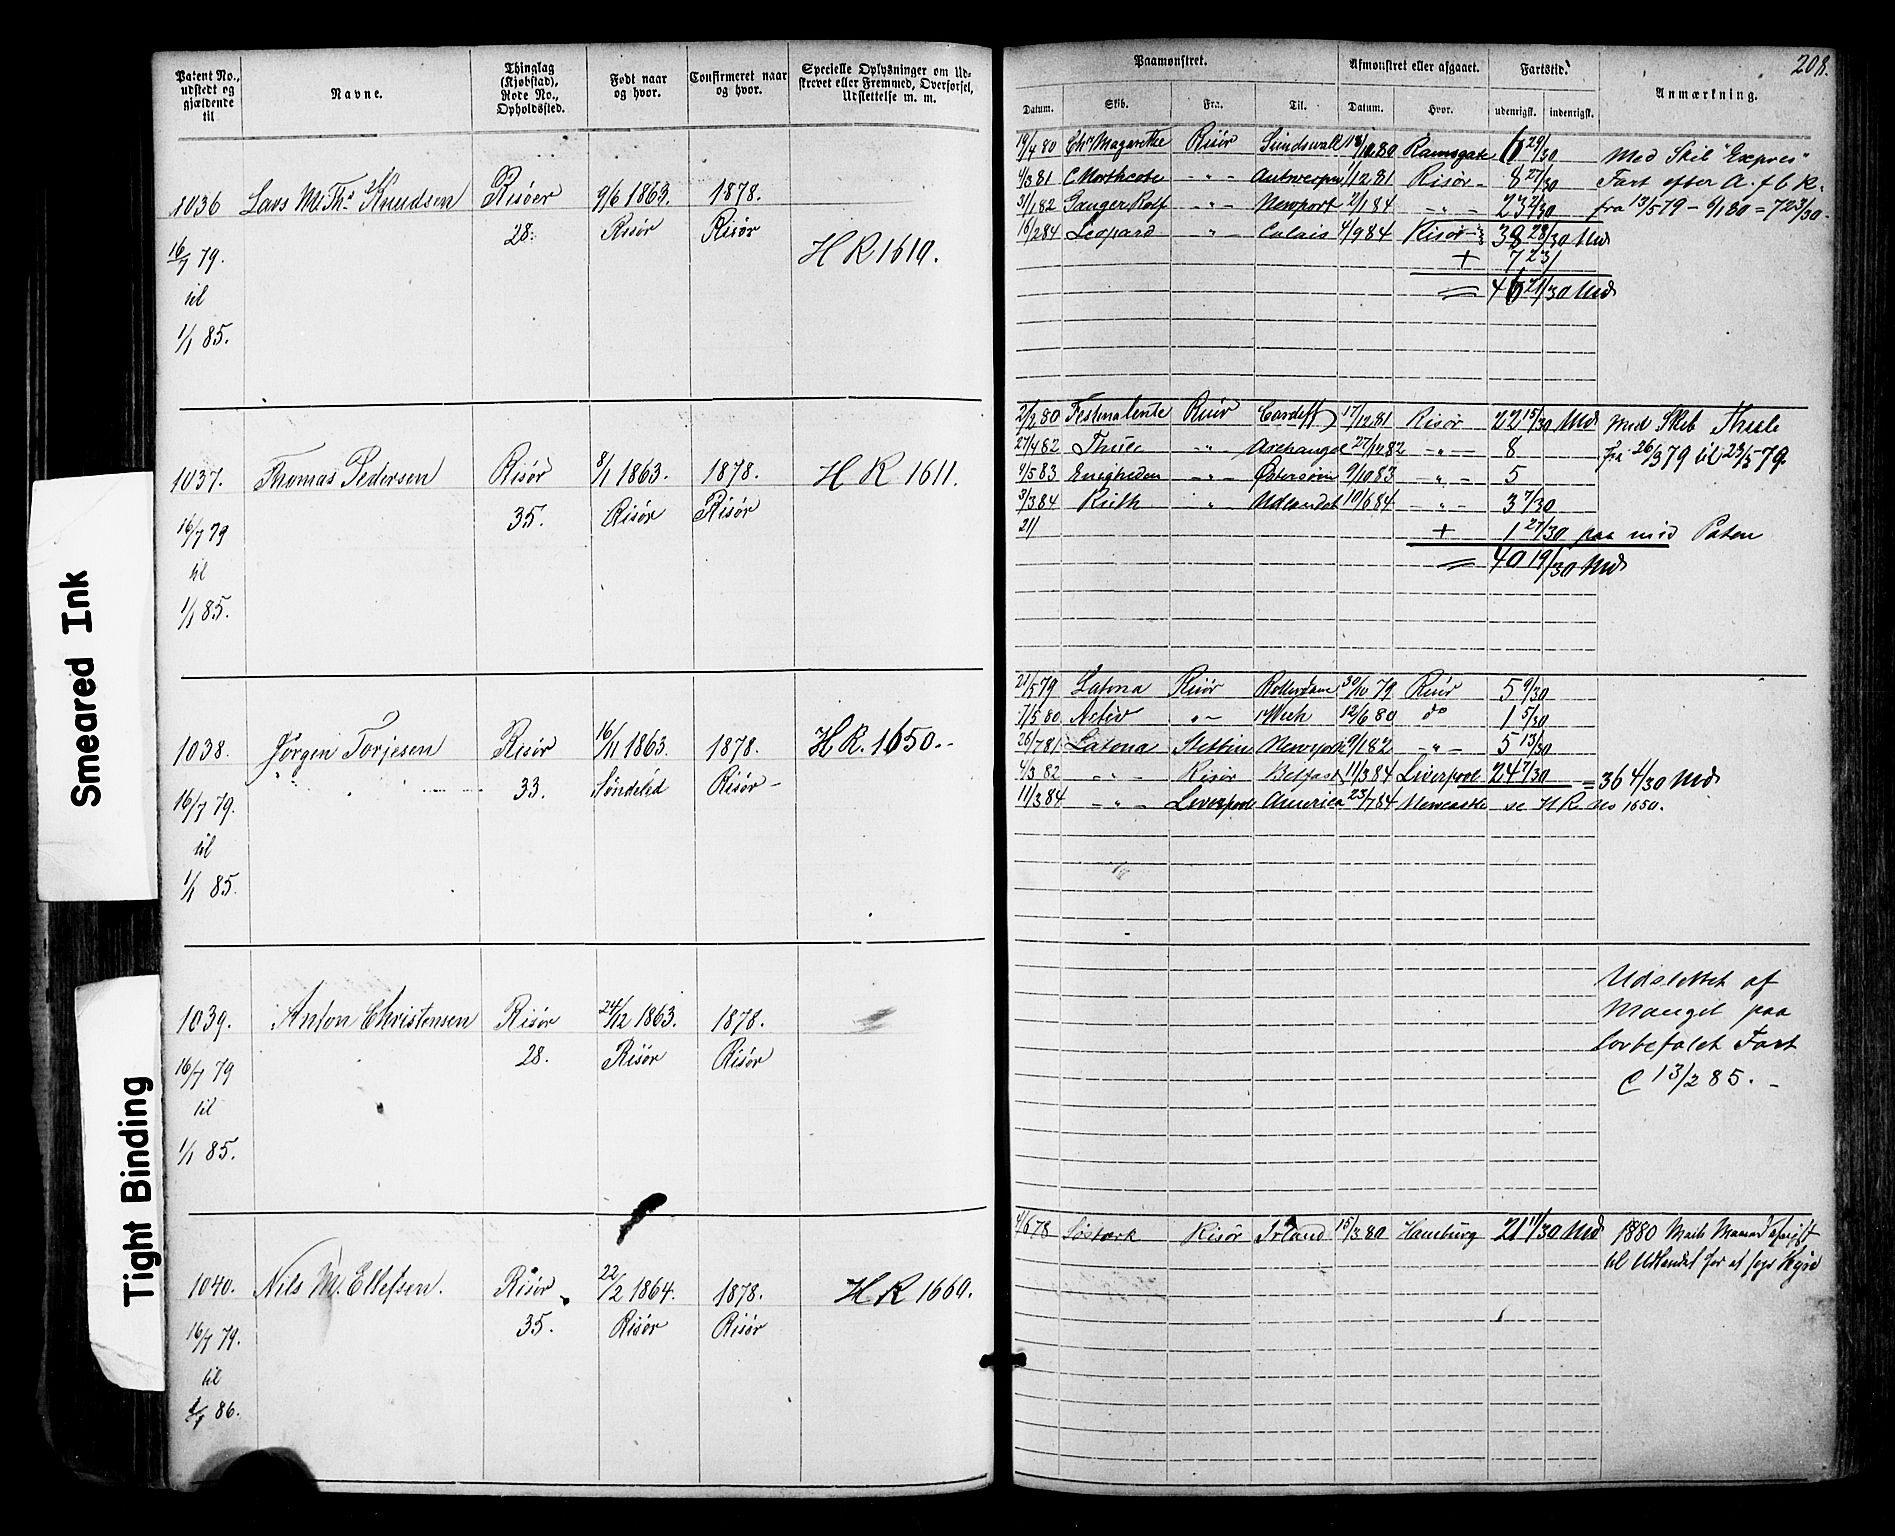 Smeared Ink
Tight Binding
Patent No., udstedt og gjældende til
Navne.
Thinglag (Kjøbstad), Rode No., Opholdssted.
Født naar og hvor.
Confirmeret naar og hvor.
Specielle Oplysninger om Udskrevet eller Fremmed, Overførsel, Udslettelse m. m.
1036 Lars M. Ths Knudsen Risøer 9/6 1863. 1878.
28. Risør Risør
H R 1610.
16/7 79.
til
1/1 85.
1037. Thomas Pedersen Risør 8/1 1863. 1878. H R 1611.
35. Risør Risør
16/7 79
til
1/1 85.
1038. Jørgen Torjesen Risør 16/11 1863. 1878. H R. 1650.-
33. Søndeled Risør -
16/7 79.
til
1/1 85.
1039. Anton Christensen Risør 24/12 1863. 1878.
28. Risør Risør
16/7 79
til
1/1 85.
1040. Nils M. Ellefsen. Risør 22/2 1864. 1878. H R 1660.
35. Risør Risør
16/7 79.
til
1/1 86.
208.
Paamønstret. Afmønstret eller afgaaet. Fartstid. Anmærkning.
Datum. Skib. Fra. Til. Datum. Hvor. udenrigsk. indenrigsk.
19/4 80 Chr Magarethe Risør Sundswall 80 Ramsgate 6 29/30 Med Skib "Expres"
4/3 81 C Northcote -"- Antwerpen /12 81 Risør - 8 27/30 Fart efter A. f b K.
3/1 82 Ganger Rolf -"- Newport 2/1 84 -"- 23 2/30 fra 13/5 79 - 6/1 80 = 7 23/30 -
16/2 84 Leopard -"- Calais 4/9 84 Risør 38 28/30 Md
+ 7 23/
= 46 21/30 Md
2/2 80 Festina lente Risør Cardiff 17/12 81 Risør 22 15/30 Md Med Skib Thule
27/4 82 Thule -"- Archangel 27/12 82 -"- 8 fra 26/3 79 til 23/5 79.
4/5 83 Enigheden -"- Østersøen 9/10 83 -"- 5
3/3 84 Ruth -"- Udlandet 10/6 84 -"- 3 7/30
21/ + 1 27/30 paa mid Paten
= 40 19/30 Md
21/5 79 Latona Risør Rotterdam 30/10 79 Risør 5 9/30
7/5 80 Activ "- Wick 12/6 80 do 1 5/30
26/7 81 Latona Stettin Newyork 9/1 82 -"- 5 13/30
4/3 82 -"- Risør Belfast 11/3 84 Liverpool 24 7/30 = 36 4/30 Md
11/3 84 -"- Liverpool America 23/7 84 Newcastle se H R. No 1650.
Udslettet af
Mangel paa
lovbefalet Fart
C 13/2 85. -
4/6 78 Søstærk Risør Irland 15/3 80 Hamburg 21 11/30 Md 1880 Marts Maaned afrejst
til Udlandet for at søge Hyre